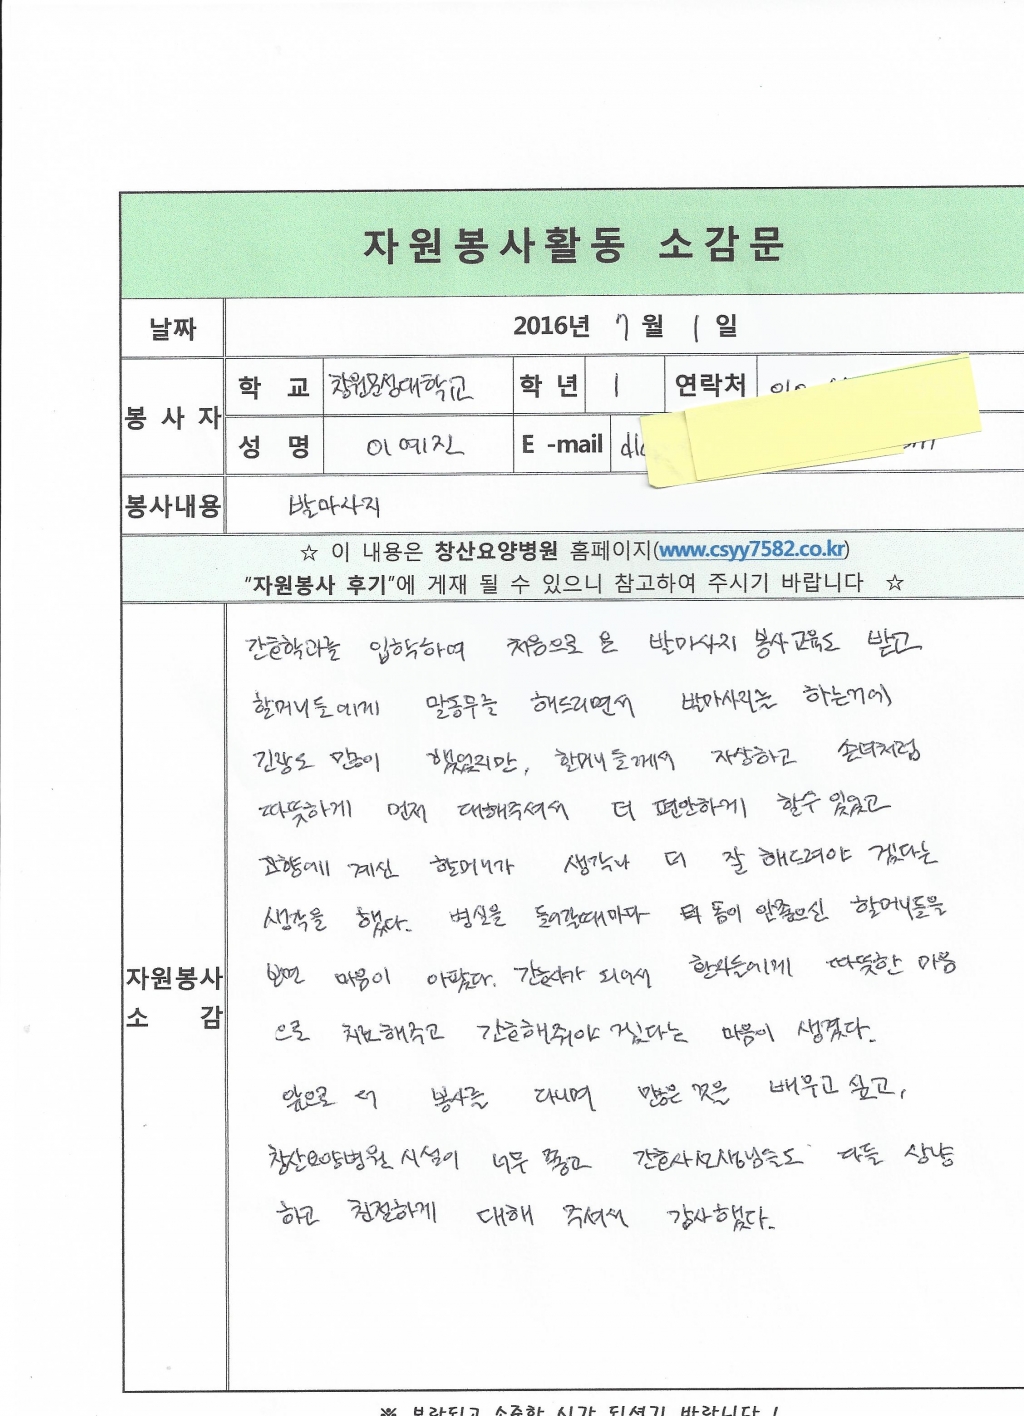 자원봉사활동 소감문
날짜 2016년 7월 1일
봉사자 학 교 창원문성대학교 학 년 1 연락처
성 명 이예진 E -mail
봉사내용 발마사지
☆ 이 내용은 창산요양병원 홈페이지(www.csyy7582.co.kr)
"자원봉사 후기"에 게재 될 수 있으니 참고하여 주시기 바랍니다 ☆
자원봉사 소 감
간호학과를 입학하여 처음으로 온 발마사지 봉사교육도 받고
할머니들에게 말동무를 해드리면서 발마사지를 하는거에
긴장도 많이 했었지만, 할머니들께서 자상하고 손녀처럼
따뜻하게 먼저 대해주셔서 더 편안하게 할수 있었고
고향에 계신 할머니가 생각나 더 잘 해드려야 겠다는
생각을 했다. 병실을 들어갈때마다 몸이 안좋으신 할머니들을
보면 마음이 아팠다. 간호사가 되어서 환자들에게 따뜻한 마음
으로 치료해주고 간호해줘야 겠다는 마음이 생겼다.
앞으로 봉사를 다니며 많은 것을 배우고 싶고,
창산요양병원 시설이 너무 좋고 간호사선생님들도 다들 상냥
하고 친절하게 대해 주셔서 감사했다.
※ 보람되고 소중한 시간 되셨기 바랍니다 !